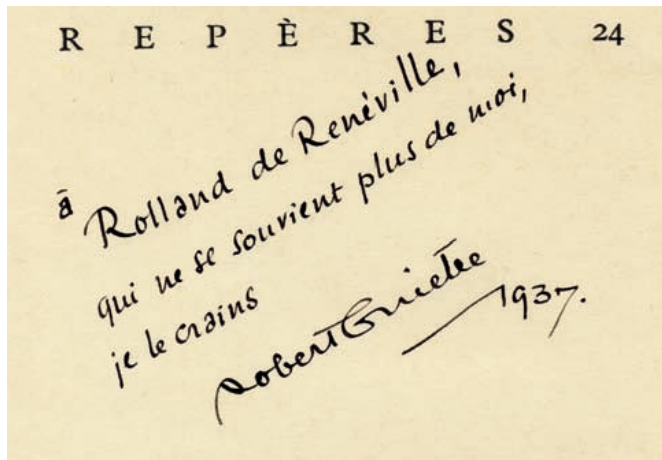 REPÈRES 24
à
Rolland de Renéville,
qui ne se souvient plus de moi,
je le crains
Robert Guiette
1937.